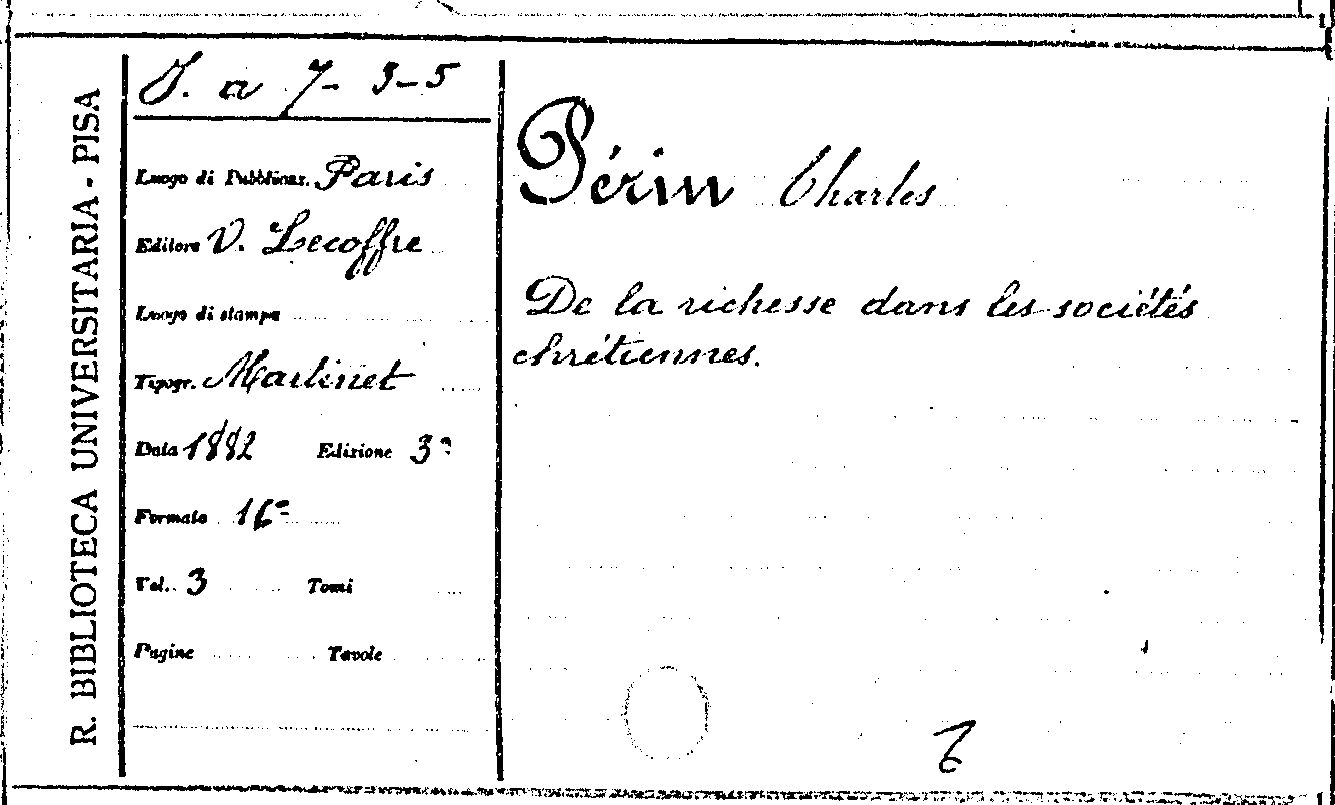 R. BIBLIOTECA UNIVERSITARIA - PISA
J. a 7- 3-5
Luogo di Pubblicaz. Paris
Editore V. Lecoffre
Luogo di stampa
Tipogr. Martinet
Data 1882 Edizione 3ª
Formato 16º
Vol. 3 Tomi
Pagine Tavole
Périn Charles
De la richesse dans les sociétés
chrétiennes.